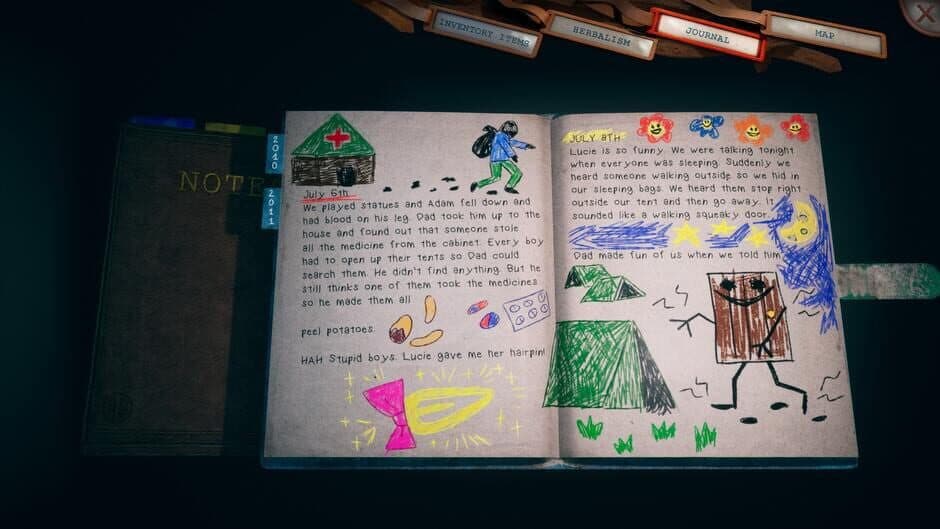 INVENTORY ITEMS
HERBALISM
JOURNAL
MAP
NOTE
2010
2011
July 6th
We played statues and Adam fell down and
had blood on his leg. Dad took him up to the
house and found out that someone stole
all the medicine from the cabinet. Every boy
had to open up their tents so Dad could
search them. He didn't find anything. But he
still thinks one of them took the medicines
so he made them all
peel potatoes.
HAH Stupid boys. Lucie gave me her hairpin!
JULY 8TH
Lucie is so funny. We were talking tonight
when everyone was sleeping. Suddenly we
heard someone walking outside so we hid in
our sleeping bags. We heard them stop right
outside our tent and then go away. It
sounded like a walking squeaky door.
Dad made fun of us when we told him